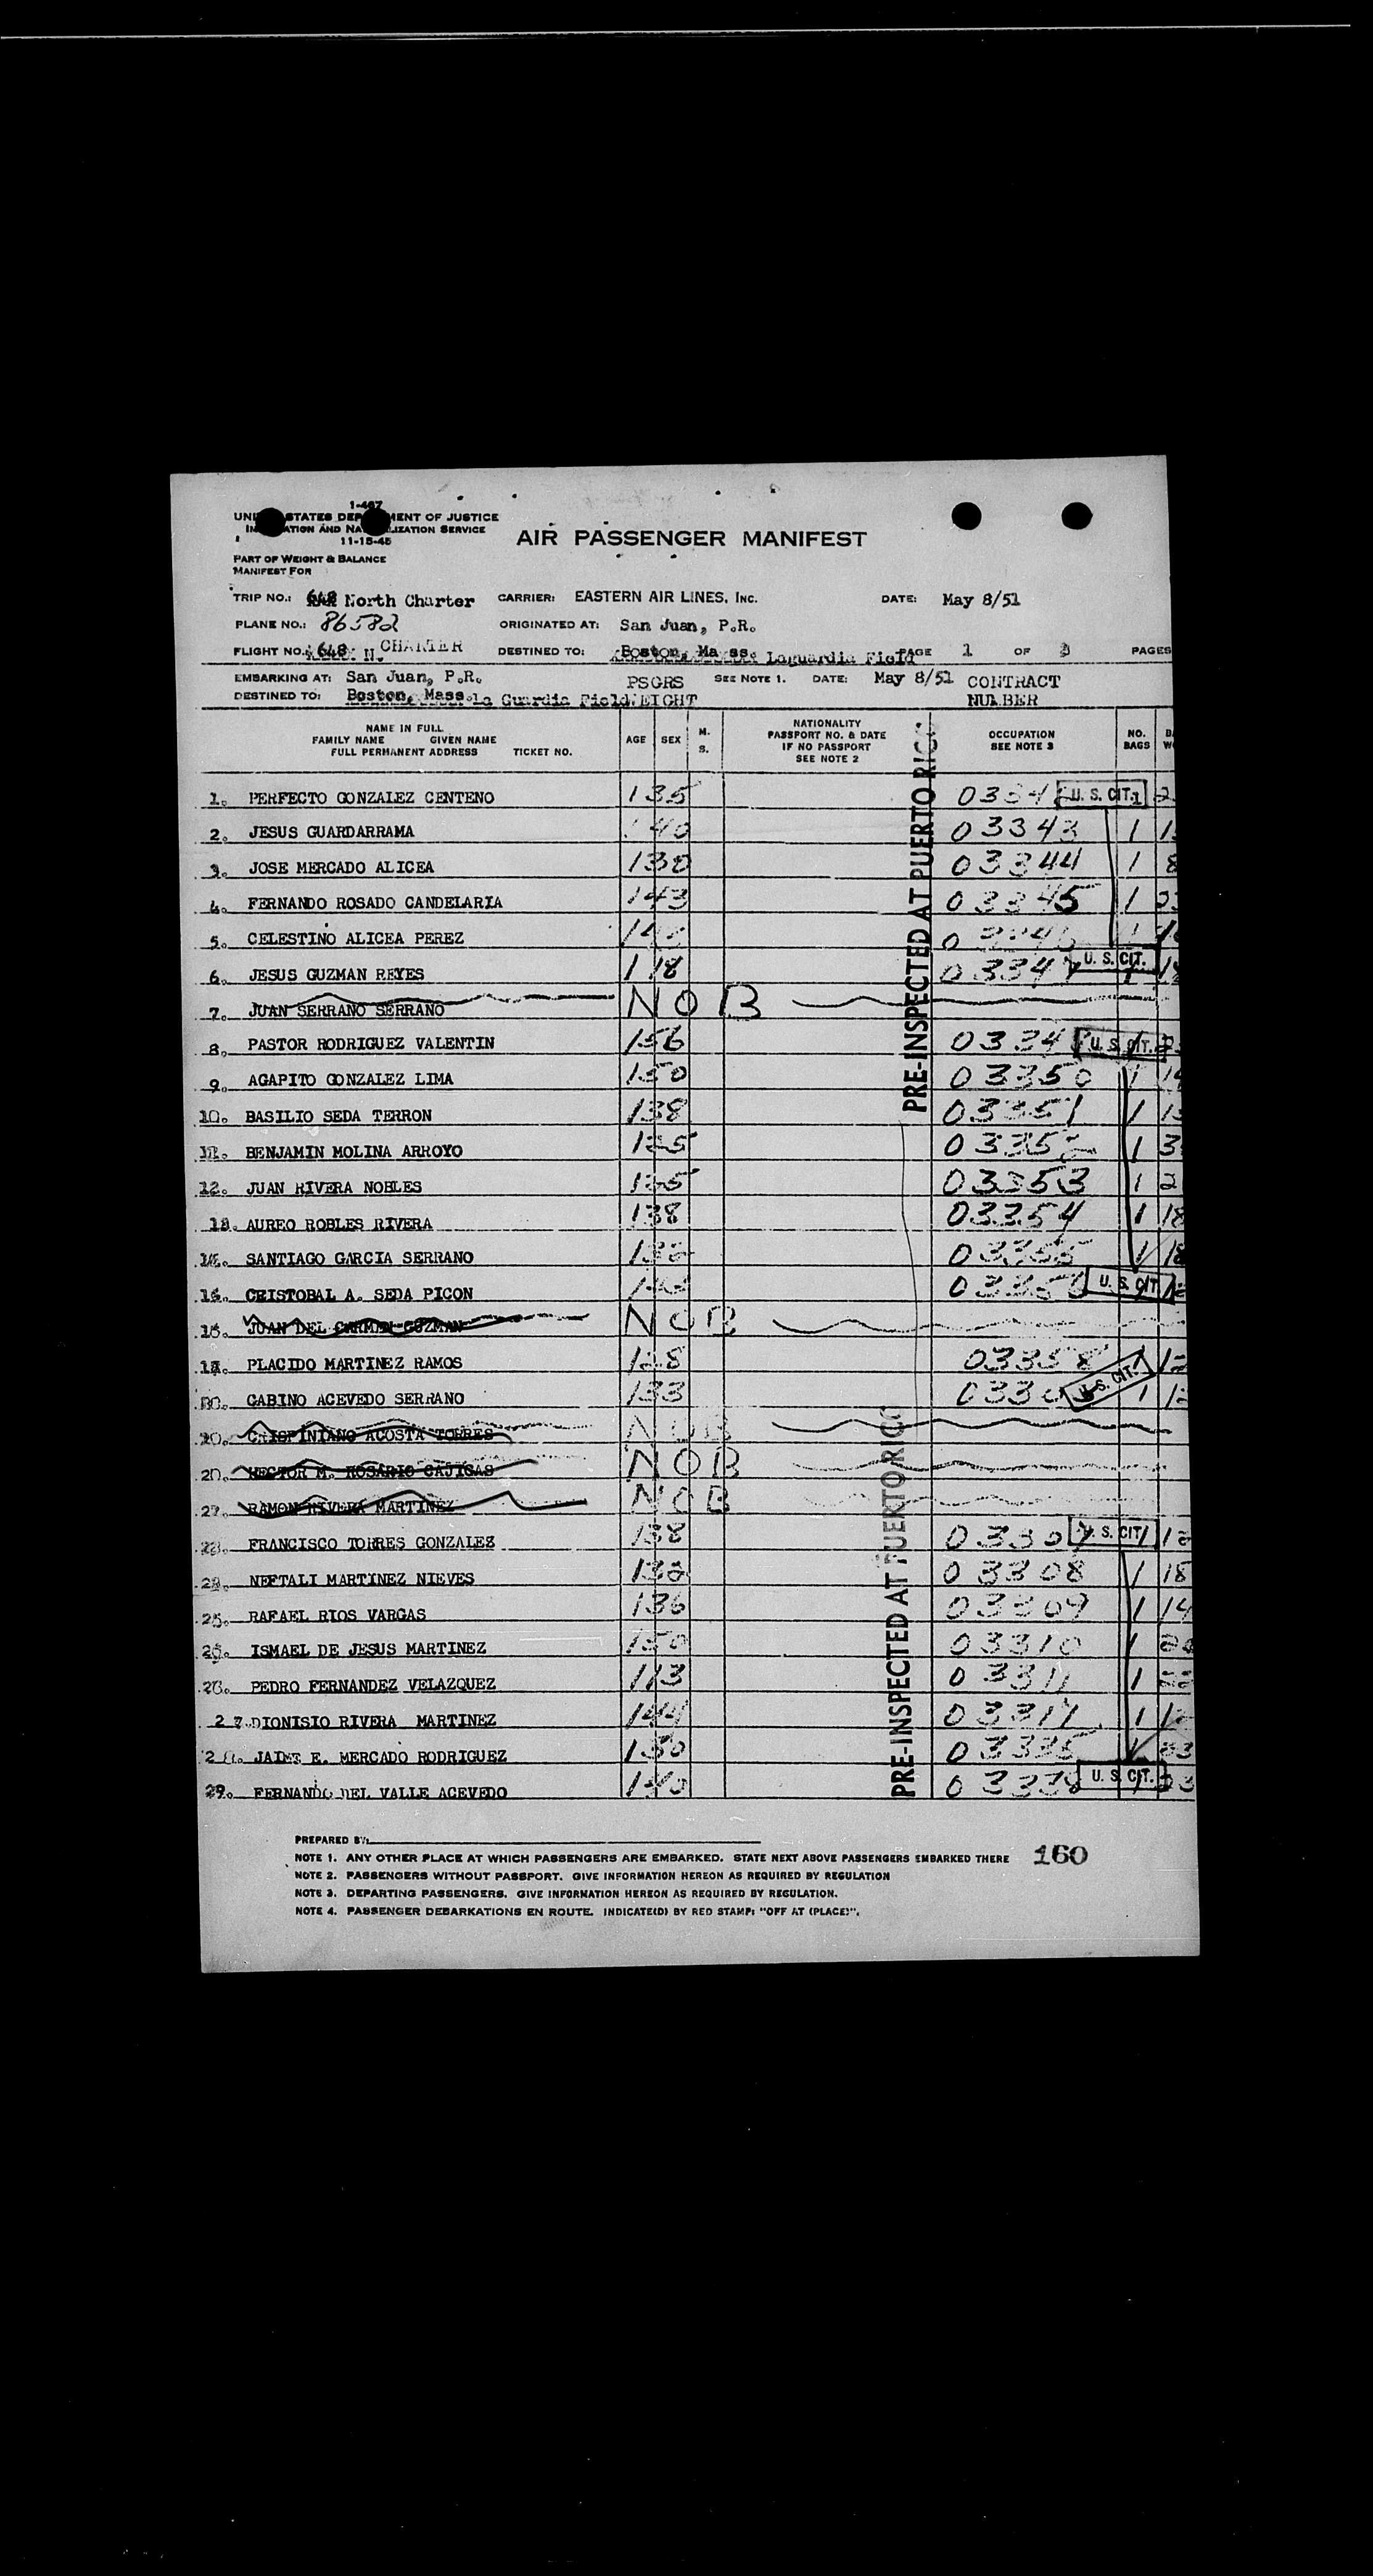 1-467
UNITED STATES DEPARTMENT OF JUSTICE
IMMIGRATION AND NATURALIZATION SERVICE
11-15-45
AIR PASSENGER MANIFEST
PART OF WEIGHT & BALANCE
MANIFEST FOR
TRIP NO.: 648 North Charter CARRIER: EASTERN AIR LINES, INC. DATE: May 8/51
PLANE NO.: 86582 ORIGINATED AT: San Juan, P.R.
FLIGHT NO.: 648 N. CHARTER DESTINED TO: Boston, Mass. Laguardia Field PAGE 1 OF PAGES
EMBARKING AT: San Juan, P.R. PSGRS SEE NOTE 1. DATE: May 8/51 CONTRACT
DESTINED TO: Boston, Mass. La Guardia Field WEIGHT NUMBER
NAME IN FULL
FAMILY NAME GIVEN NAME
FULL PERMANENT ADDRESS TICKET NO.
AGE SEX M. S.
NATIONALITY
PASSPORT NO. & DATE
IF NO PASSPORT
SEE NOTE 2
OCCUPATION
SEE NOTE 3
NO. BAGS
PRE-INSPECTED AT PUERTO RICO
1. PERFECTO GONZALEZ CENTENO 135 U. S. CIT. 1
2. JESUS GUARDARRAMA 140 03343 1
3. JOSE MERCADO ALICEA 130 03344 1 8
4. FERNANDO ROSADO CANDELARIA 143 03345 1
5. CELESTINO ALICEA PEREZ
6. JESUS GUZMAN REYES 118 03347 U. S. CIT. 1
7. JUAN SERRANO SERRANO NOB
8. PASTOR RODRIGUEZ VALENTIN 156 U. S. CIT.
9. AGAPITO GONZALEZ LIMA 150 03350 1
10. BASILIO SEDA TERRON 138 03351 1
11. BENJAMIN MOLINA ARROYO 125 03352 1 3
12. JUAN RIVERA NOBLES 135 03353 1 2
13. AUREO ROBLES RIVERA 138 03354 1 18
14. SANTIAGO GARCIA SERRANO 03355 1 18
15. CRISTOBAL A. SEDA PICON U. S. CIT.
16. JUAN DEL CARMEN GUZMAN NOB
17. PLACIDO MARTINEZ RAMOS 128 03358 1
GABINO ACEVEDO SERRANO 133 U. S. CIT. 1
CRISPINIANO ACOSTA TORRES NOB
20. HECTOR M. ROSARIO CAJIGAS NOB
RAMON RIVERA MARTINEZ NOB
PRE-INSPECTED AT PUERTO RICO
FRANCISCO TORRES GONZALEZ 138 03307 U. S. CIT.
NEFTALI MARTINEZ NIEVES 132 03308 1 18
RAFAEL RIOS VARGAS 136 03309 1 14
ISMAEL DE JESUS MARTINEZ 150 03310 1
26. PEDRO FERNANDEZ VELAZQUEZ 113 03311 1
27. DIONISIO RIVERA MARTINEZ 144 1
JAIME E. MERCADO RODRIGUEZ 130 03335 23
29. FERNANDO DEL VALLE ACEVEDO 140 03338 U. S. CIT. 23
PREPARED BY:
NOTE 1. ANY OTHER PLACE AT WHICH PASSENGERS ARE EMBARKED. STATE NEXT ABOVE PASSENGERS EMBARKED THERE 160
NOTE 2. PASSENGERS WITHOUT PASSPORT. GIVE INFORMATION HEREON AS REQUIRED BY REGULATION
NOTE 3. DEPARTING PASSENGERS. GIVE INFORMATION HEREON AS REQUIRED BY REGULATION.
NOTE 4. PASSENGER DEBARKATIONS EN ROUTE. INDICATE(D) BY RED STAMP: "OFF AT (PLACE)".